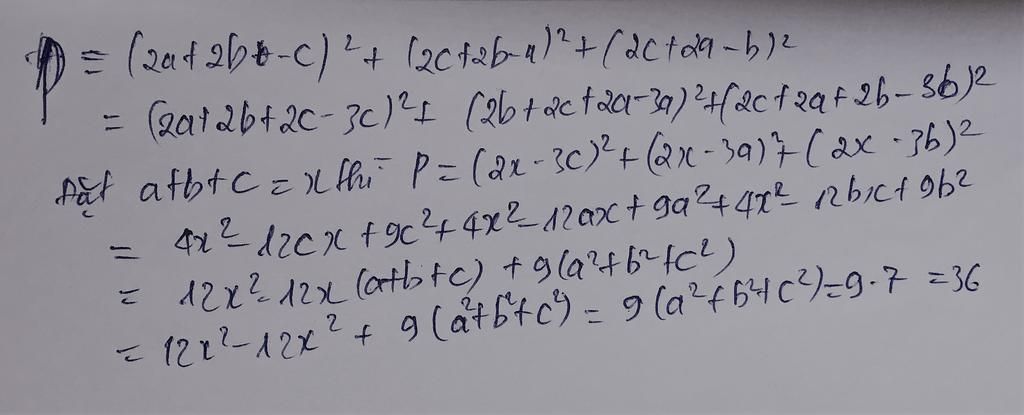 P = (2a+2b-c)² + (2c+2b-a)² + (2c+2a-b)²
= (2a+2b+2c-3c)² + (2b+2c+2a-3a)² + (2c+2a+2b-3b)²
Đặt a+b+c = x thì P = (2x-3c)² + (2x-3a)² + (2x-3b)²
= 4x² - 12cx + 9c² + 4x² - 12ax + 9a² + 4x² - 12bx + 9b²
= 12x² - 12x (a+b+c) + 9(a²+b²+c²)
= 12x² - 12x² + 9(a²+b²+c²) = 9(a²+b²+c²) = 9.7 = 36